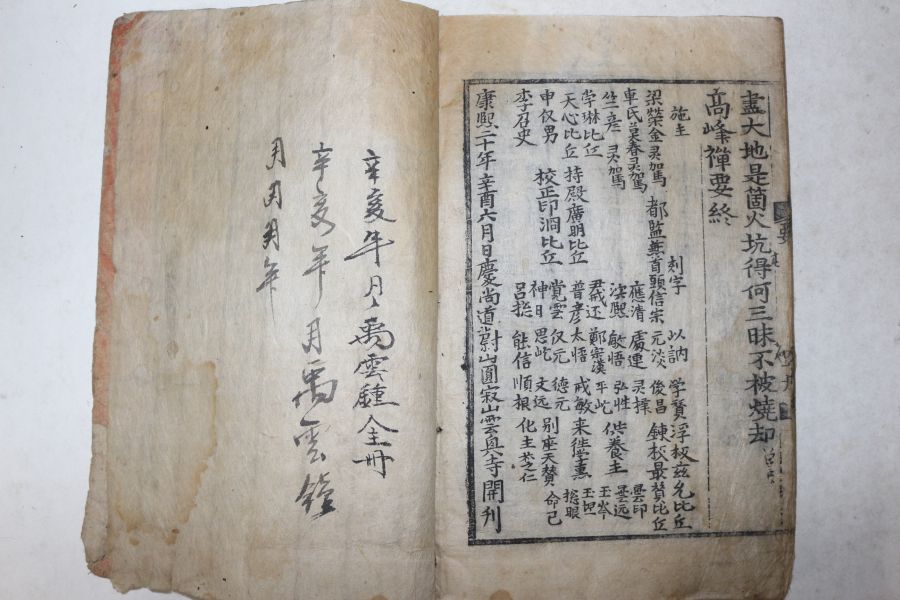 盡大地是箇火坑得何三昧不被燒却
高峰禪要終
施主 刻字 以訥 學賢 浮板玆允比丘
梁榮金灵駕 都監兼首頭信宗 元淡 俊昌 鍊板最賛比丘
車氏莫春灵駕 應清 處連 灵擇 曇印
竺彦灵駕 法熙 敏悟 弘性 供養主 曇远
學琳比丘 君戒还 鄭案漢 平屹 玉岑
天心比丘 持殿廣明比丘 普彦 太悟 戒敏 來徃學熏 玉囬
申仅男 校正印洞比丘 覺雲 仅元 德元 別座天賛 揔眼
李召史 神日 思屹 文远 化主 命己
呂摠 能信 順根
康熙二十年辛酉六月日慶尚道蔚山圓寂山雲興寺開刊
辛亥年月禹雲鍾全冊
辛亥年月禹雲鍾
月月月年